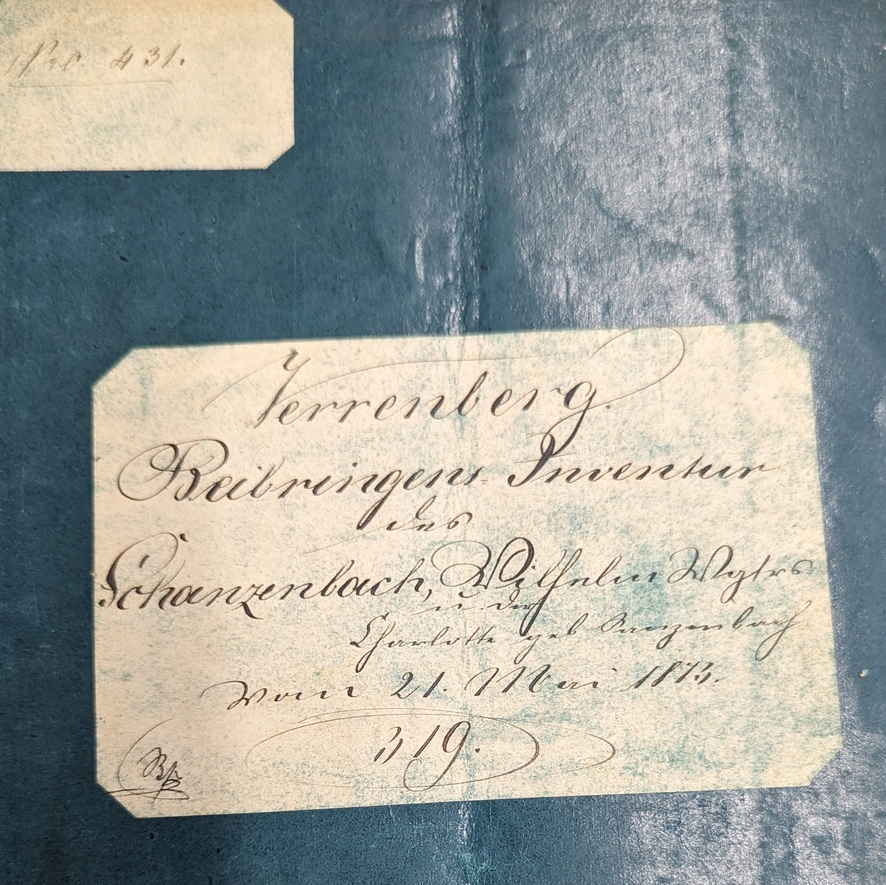 No. 431.
Verrenberg.
Beibringens-Inventur
des
Schanzenbach, Wilhelm Wgtrs
u der
Charlotte geb Sanzenbach
Vom 21. Mai 1873.
319.